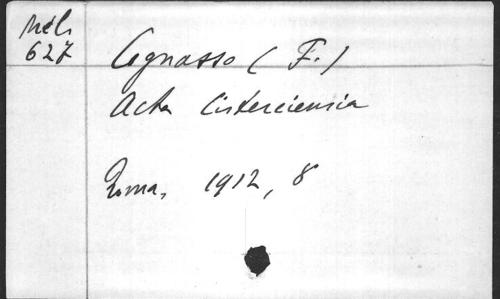 Mél.
627
Cognasso (F.)
Acta Cisterciensia
Roma, 1912, 8